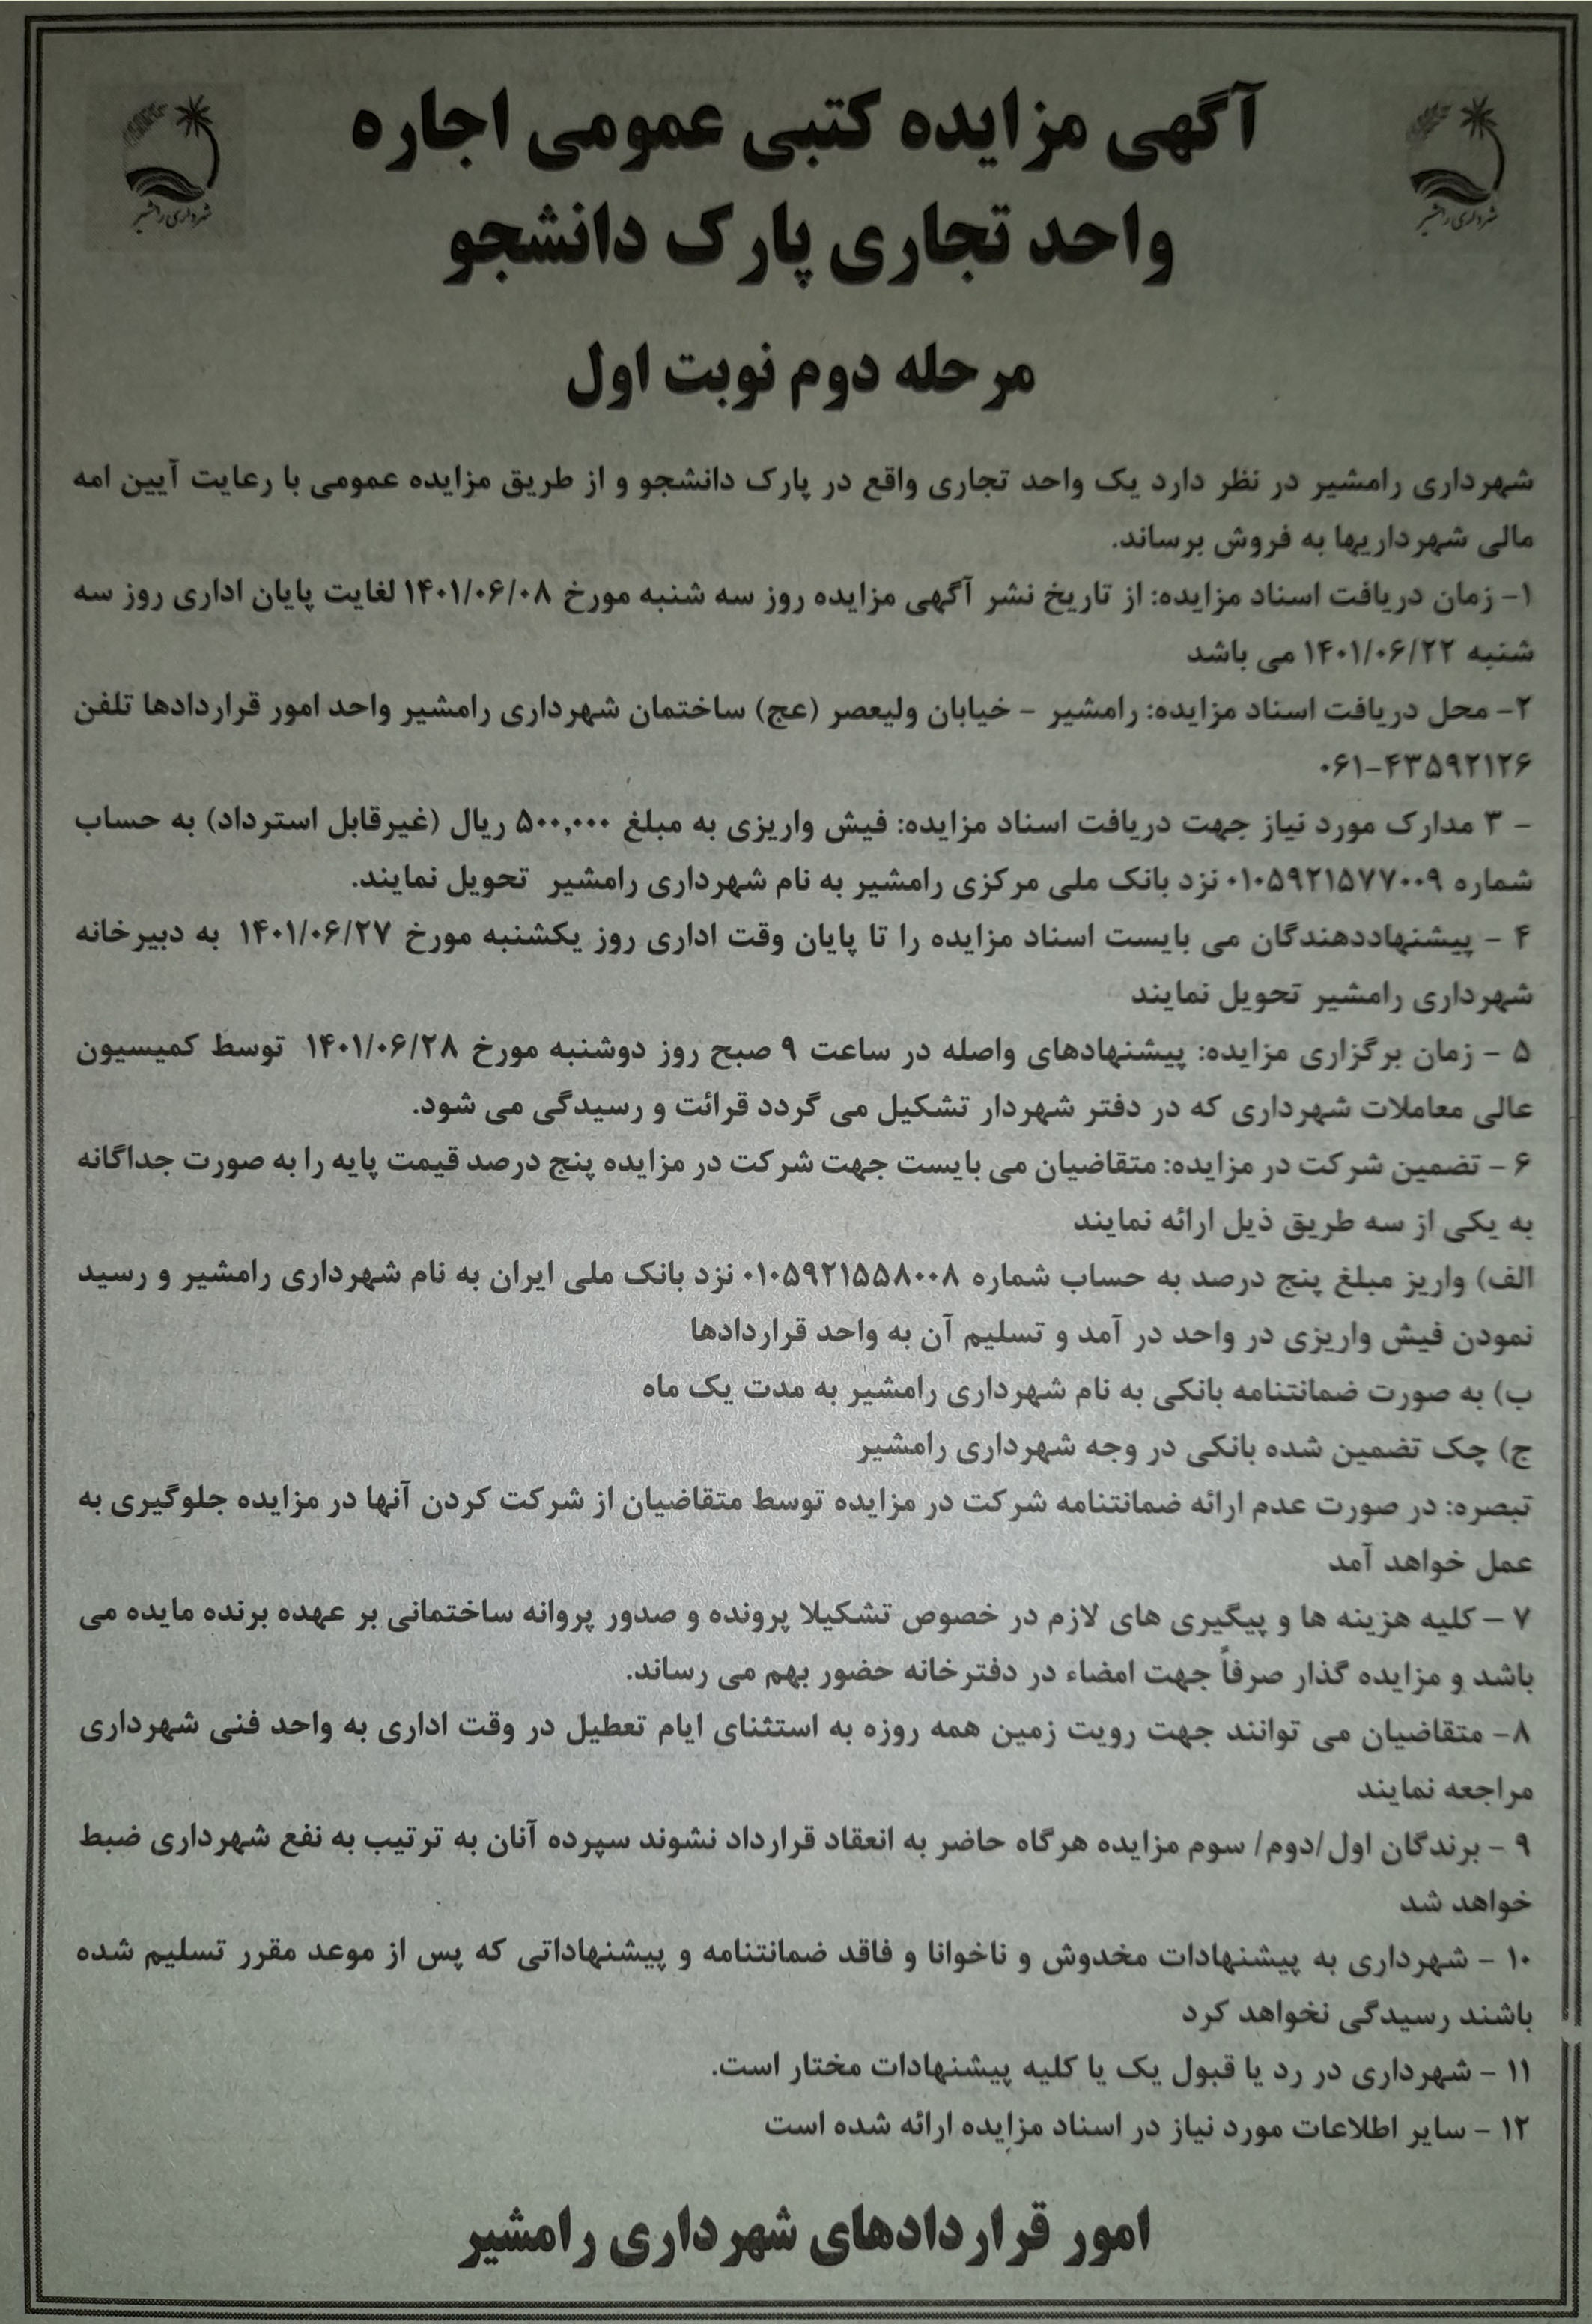 آگهی مزایده کتبی عمومی اجاره
واحد تجاری پارک دانشجو
شهرداری رامشیر
شهرداری رامشیر
مرحله دوم نوبت اول
شهرداری رامشیر در نظر دارد یک واحد تجاری واقع در پارک دانشجو و از طریق مزایده عمومی با رعایت آیین امه
مالی شهرداریها به فروش برساند.
۱- زمان دریافت اسناد مزایده: از تاریخ نشر آگهی مزایده روز سه شنبه مورخ ۱۴۰۱/۰۶/۰۸ لغایت پایان اداری روز سه
شنبه ۱۴۰۱/۰۶/۲۲ می باشد
۲- محل دریافت اسناد مزایده: رامشیر - خیابان ولیعصر (عج) ساختمان شهرداری رامشیر واحد امور قراردادها تلفن
۰۶۱-۴۳۵۹۲۱۲۶
- ۳ مدارک مورد نیاز جهت دریافت اسناد مزایده: فیش واریزی به مبلغ ۵۰۰,۰۰۰ ریال (غیرقابل استرداد) به حساب
شماره ۰۱۰۵۹۲۱۵۷۷۰۰۹ نزد بانک ملی مرکزی رامشیر به نام شهرداری رامشیر تحویل نمایند.
۴ - پیشنهاددهندگان می بایست اسناد مزایده را تا پایان وقت اداری روز یکشنبه مورخ ۱۴۰۱/۰۶/۲۷ به دبیرخانه
شهرداری رامشیر تحویل نمایند
۵ - زمان برگزاری مزایده: پیشنهادهای واصله در ساعت ۹ صبح روز دوشنبه مورخ ۱۴۰۱/۰۶/۲۸ توسط کمیسیون
عالی معاملات شهرداری که در دفتر شهردار تشکیل می گردد قرائت و رسیدگی می شود.
۶ - تضمین شرکت در مزایده: متقاضیان می بایست جهت شرکت در مزایده پنج درصد قیمت پایه را به صورت جداگانه
به یکی از سه طریق ذیل ارائه نمایند
الف) واریز مبلغ پنج درصد به حساب شماره ۰۱۰۵۹۲۱۵۵۸۰۰۸ نزد بانک ملی ایران به نام شهرداری رامشیر و رسید
نمودن فیش واریزی در واحد در آمد و تسلیم آن به واحد قراردادها
ب) به صورت ضمانتنامه بانکی به نام شهرداری رامشیر به مدت یک ماه
ج) چک تضمین شده بانکی در وجه شهرداری رامشیر
تبصره: در صورت عدم ارائه ضمانتنامه شرکت در مزایده توسط متقاضیان از شرکت کردن آنها در مزایده جلوگیری به
عمل خواهد آمد
۷ - کلیه هزینه ها و پیگیری های لازم در خصوص تشکیلا پرونده و صدور پروانه ساختمانی بر عهده برنده مایده می
باشد و مزایده گذار صرفاً جهت امضاء در دفترخانه حضور بهم می رساند.
۸- متقاضیان می توانند جهت رویت زمین همه روزه به استثنای ایام تعطیل در وقت اداری به واحد فنی شهرداری
مراجعه نمایند
۹ - برندگان اول/دوم/ سوم مزایده هرگاه حاضر به انعقاد قرارداد نشوند سپرده آنان به ترتیب به نفع شهرداری ضبط
خواهد شد
۱۰ - شهرداری به پیشنهادات مخدوش و ناخوانا و فاقد ضمانتنامه و پیشنهاداتی که پس از موعد مقرر تسلیم شده
باشند رسیدگی نخواهد کرد
۱۱ - شهرداری در رد یا قبول یک یا کلیه پیشنهادات مختار است.
۱۲ - سایر اطلاعات مورد نیاز در اسناد مزایده ارائه شده است
امور قراردادهای شهرداری رامشیر